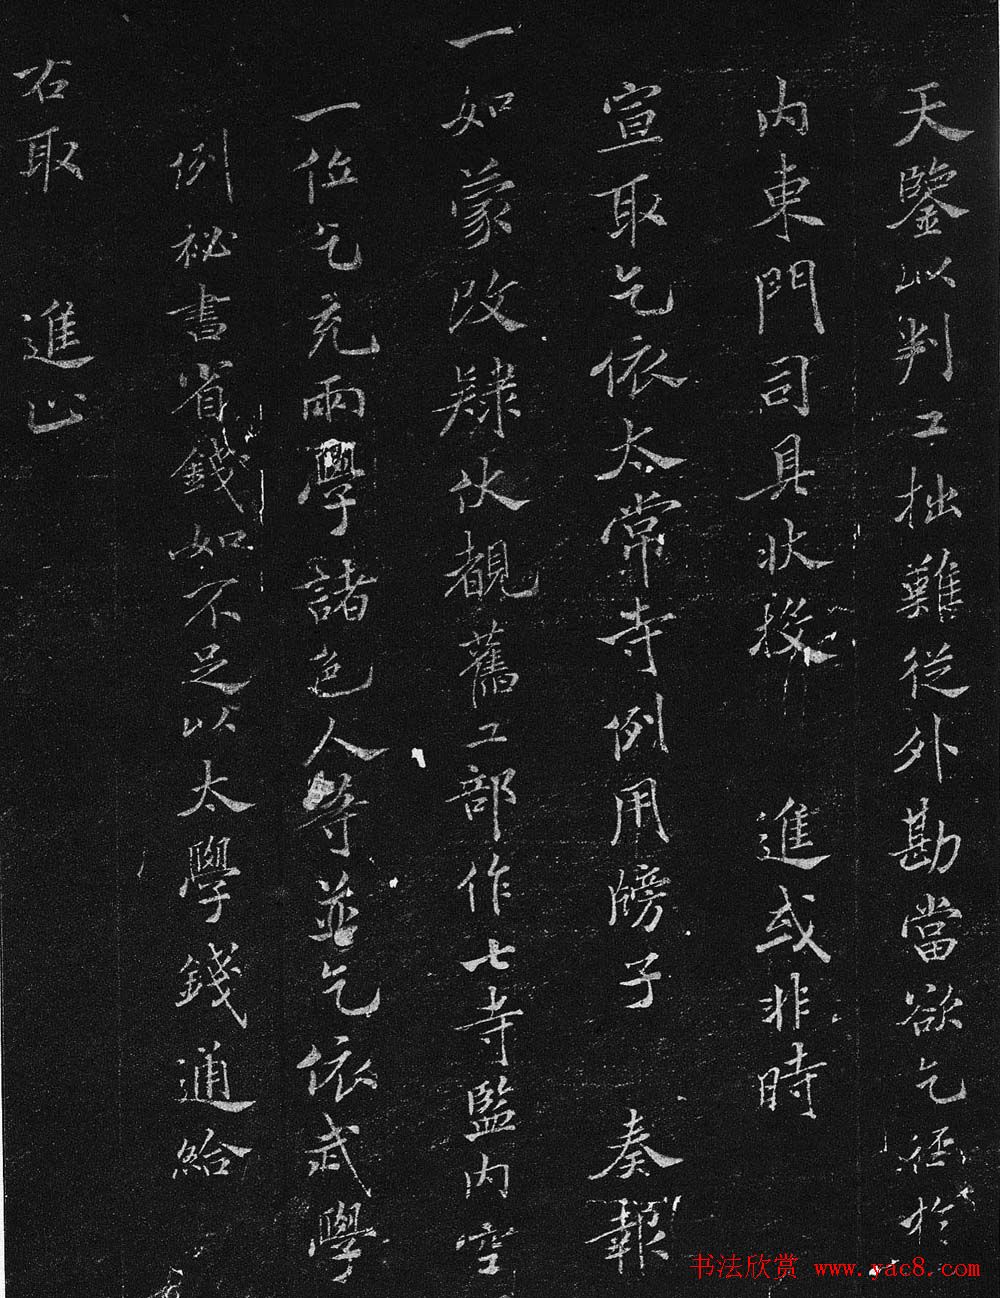 天鑒以判工拙難從外勘當欲乞徑於
内東門司具狀投進或非時
宣取乞依太常寺例用牓子奏報
一如蒙改肄伏覩舊工部作七寺監内空
一位乞充兩學諸色人等並乞依武學
例祕書省錢如不足以太學錢通給
右取進止
书法欣赏 www.yac8.com